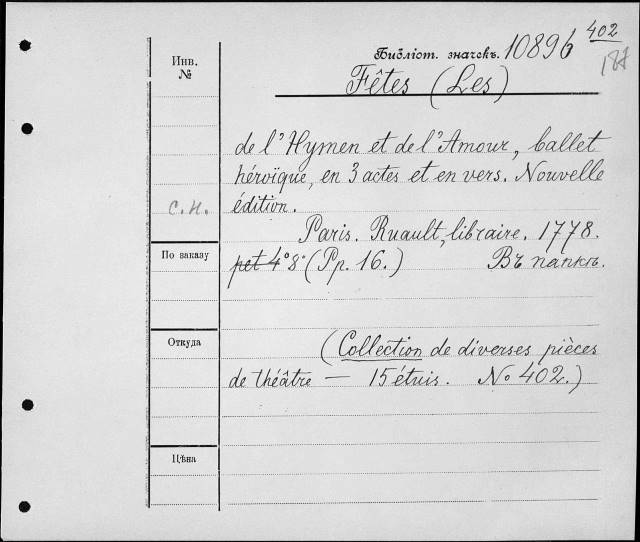 402
Библіот. значекъ. 10896
187
Инв.
№
Fêtes (Les)
de l'Hymen et de l'Amour, ballet
héroïque, en 3 actes et en vers. Nouvelle
с.н. édition.
Paris. Ruault, libraire. 1778.
По заказу
pet 4° 8° (Pp. 16.) Въ папкѣ.
Откуда
(Collection de diverses pièces
de théâtre — 15 étuis. No 402.)
Цѣна